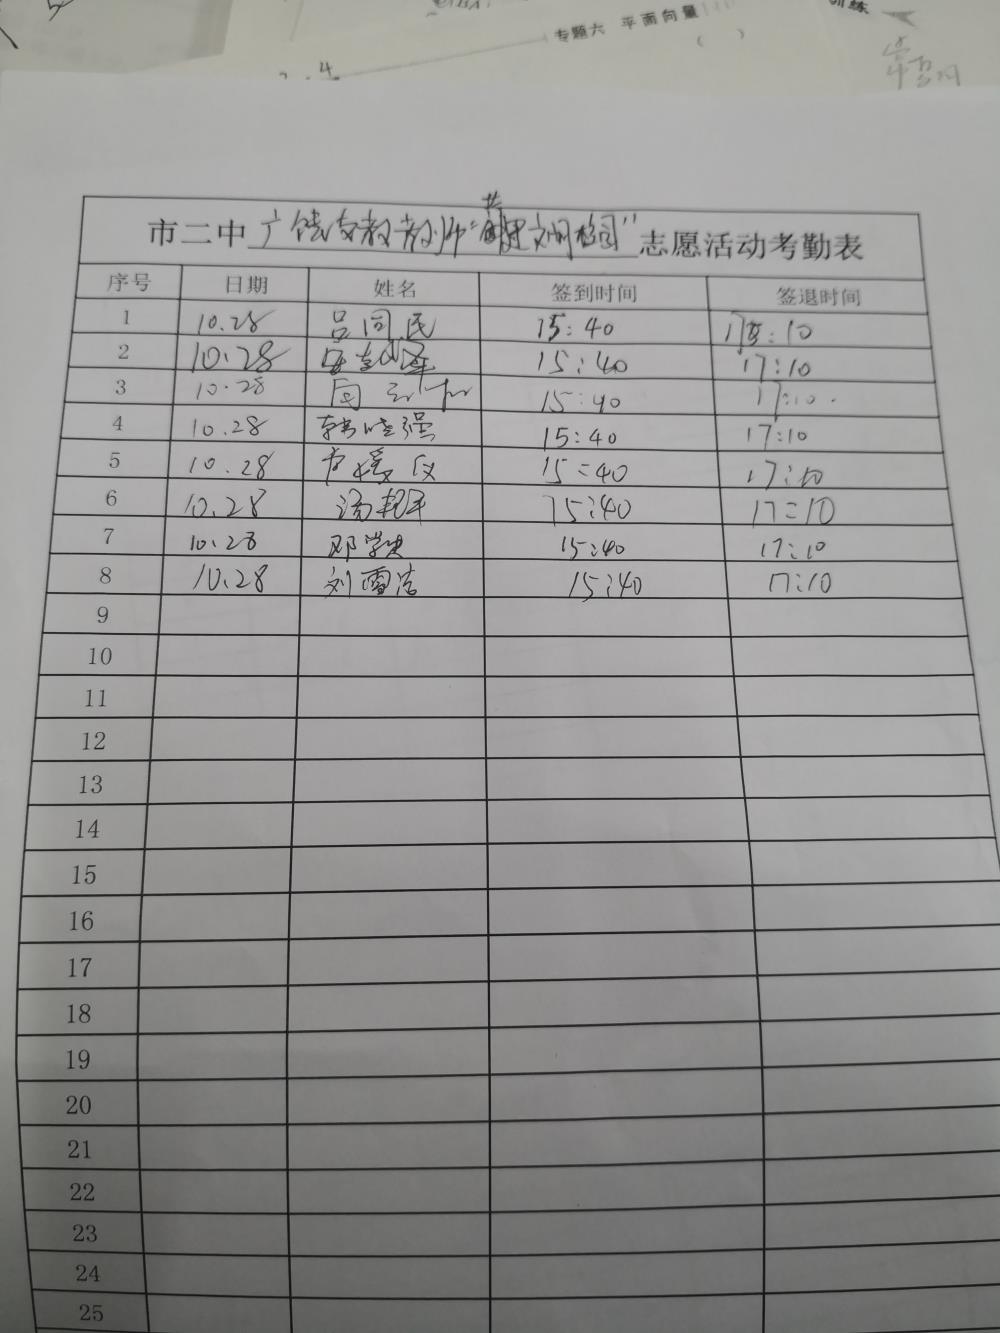 专题六 平面向量
( )
训练
4
市二中广饶支教教师“共建文明校园”志愿活动考勤表
序号 日期 姓名 签到时间 签退时间
1 10.28 吕同民 15:40 17:10
2 10.28 15:40 17:10
3 10.28 15:40 17:10.
4 10.28 韩晓强 15:40 17:10
5 10.28 15:40 17:10
6 10.28 15:40 17:10
7 10.28 邓学忠 15:40 17:10
8 10.28 刘雪洁 15:40 17:10
9
10
11
12
13
14
15
16
17
18
19
20
21
22
23
24
25